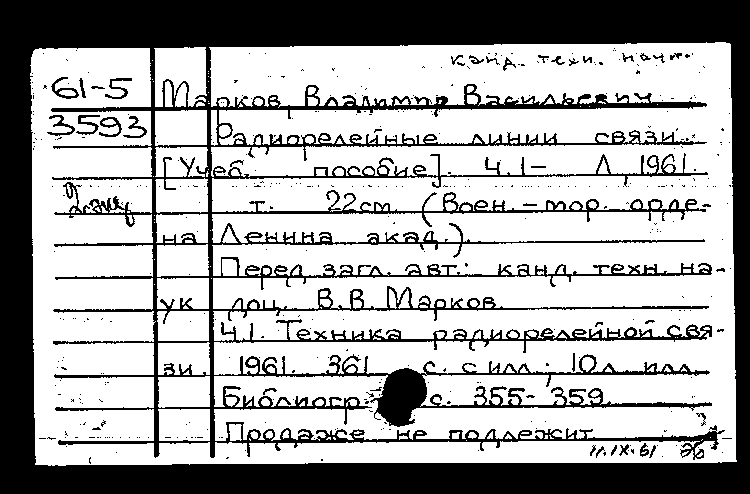 канд. техн. наук.
61-5
Марков, Владимир Васильевич
3593
Радиорелейные линии связи.
[Учеб. пособие]. Ч.1- Л, 1961.
2 экз
т. 22см. (Воен.-мор. орде-
на Ленина акад.).
Перед загл. авт.: канд. техн. на-
ук доц. В.В. Марков.
Ч.1. Техника радиорелейной свя-
зи. 1961. 361 с. с илл.; 10л. илл.
Библиогр. с. 355-359.
Продаже не подлежит
11.IX.61